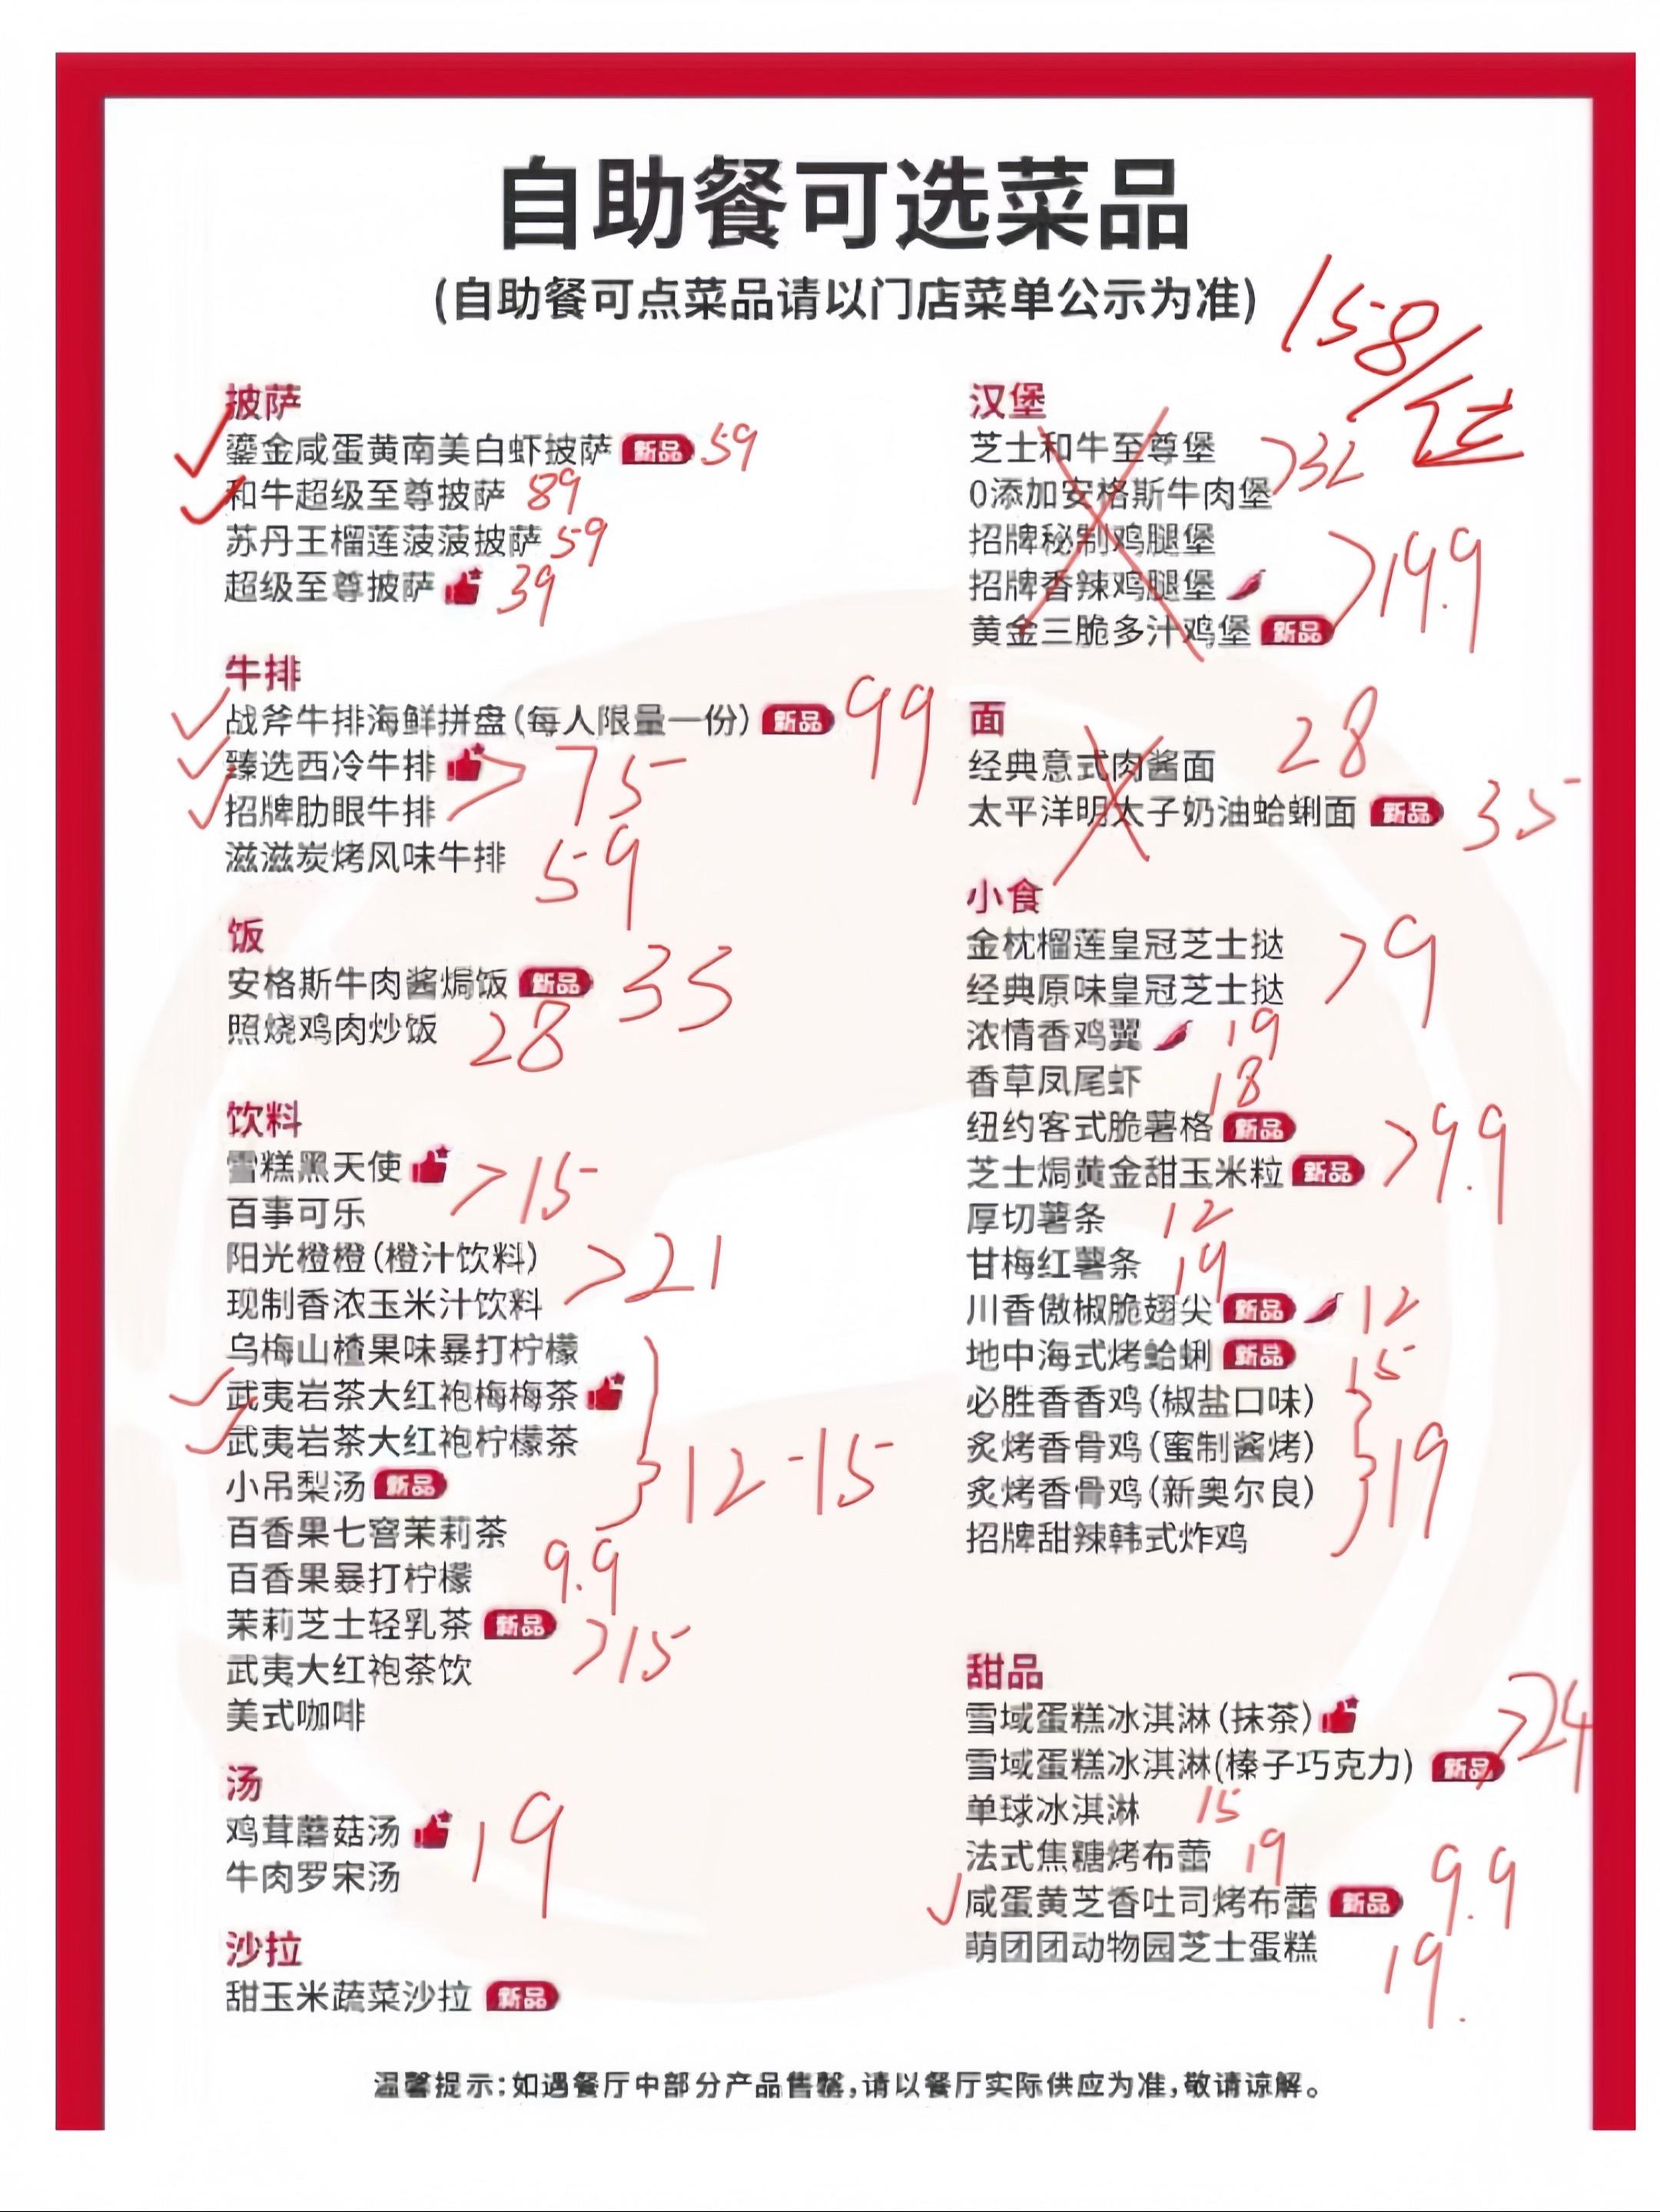 自助餐可选菜品
(自助餐可点菜品请以门店菜单公示为准)
158/位
披萨
鎏金咸蛋黄南美白虾披萨 新品 59
和牛超级至尊披萨 89
苏丹王榴莲菠菠披萨 59
超级至尊披萨 39
牛排
战斧牛排海鲜拼盘(每人限量一份) 新品 99
臻选西冷牛排
招牌肋眼牛排
75
滋滋炭烤风味牛排 59
饭
安格斯牛肉酱焗饭 新品 35
照烧鸡肉炒饭 28
饮料
雪糕黑天使
百事可乐
15
阳光橙橙(橙汁饮料)
现制香浓玉米汁饮料
21
乌梅山楂果味暴打柠檬
武夷岩茶大红袍梅梅茶
武夷岩茶大红袍柠檬茶
小吊梨汤 新品
百香果七窨茉莉茶
12-15
百香果暴打柠檬 9.9
茉莉芝士轻乳茶 新品
武夷大红袍茶饮
15
美式咖啡
汤
鸡茸蘑菇汤
牛肉罗宋汤
19
沙拉
甜玉米蔬菜沙拉 新品
汉堡
芝士和牛至尊堡
0添加安格斯牛肉堡
32
招牌秘制鸡腿堡
招牌香辣鸡腿堡
黄金三脆多汁鸡堡 新品
19.9
面
经典意式肉酱面 28
太平洋明太子奶油蛤蜊面 新品 35
小食
金枕榴莲皇冠芝士挞
经典原味皇冠芝士挞
9
浓情香鸡翼 19
香草凤尾虾 18
纽约客式脆薯格 新品
芝士焗黄金甜玉米粒 新品
9.9
厚切薯条 12
甘梅红薯条 19
川香傲椒脆翅尖 新品 12
地中海式烤蛤蜊 新品 15
必胜香香鸡(椒盐口味)
炙烤香骨鸡(蜜制酱烤)
炙烤香骨鸡(新奥尔良)
招牌甜辣韩式炸鸡
19
甜品
雪域蛋糕冰淇淋(抹茶)
雪域蛋糕冰淇淋(榛子巧克力) 新品
24
单球冰淇淋 15
法式焦糖烤布蕾 19
咸蛋黄芝香吐司烤布蕾 新品 9.9
萌团团动物园芝士蛋糕 19.
温馨提示:如遇餐厅中部分产品售罄,请以餐厅实际供应为准,敬请谅解。